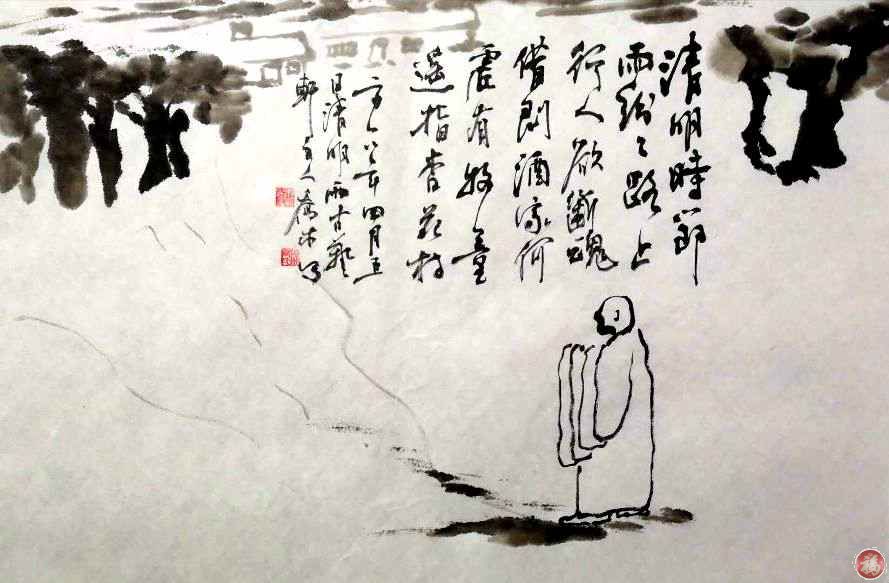 清明時節
雨紛々路上
行人欲斷魂
借問酒家何
處有牧童
遙指杏花村
年四月五
日清明雨古
軒主人喬木寫
福